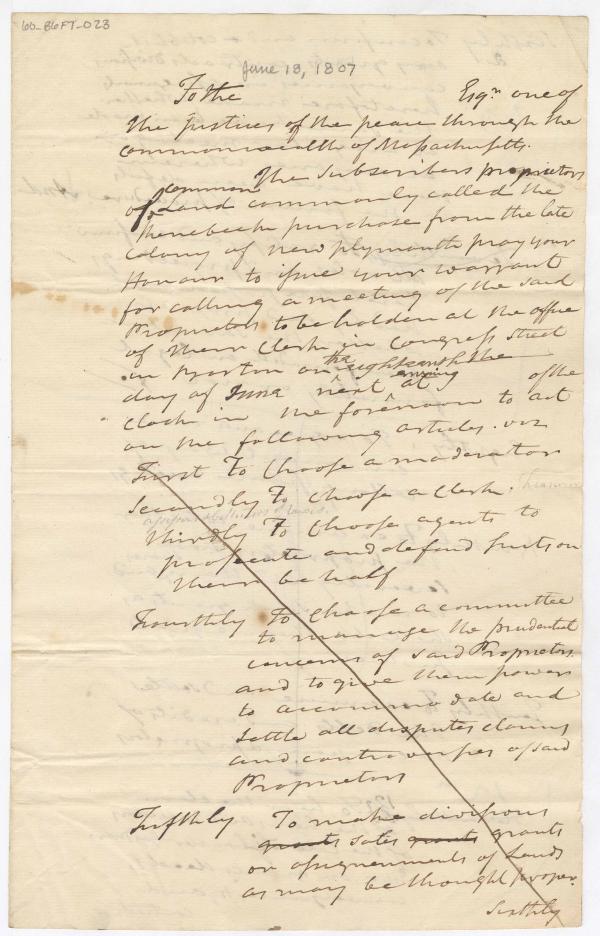 60-B6FT-023
June 18, 1807
To the Esqr. one of
the Justices of the peace through the
commonwealth of Massachusetts.
The Subscribers proprietors
common
of Land commonly called the
Kennebeck purchase from the late
Colony of new plymouth pray your
Honour to issue your warrant
for calling a meeting of the said
Proprietors to be holden at the office
of their Clerk in Congress Street
in Boston on the eighteenth
day of June next at of the
Clock in the forenoon to act
on the following articles. viz
First To Choose a moderator
Secondly To Choose a Clerk.
Thirdly To Choose agents to
prosecute and defend suits on
their behalf
Fourthly To Choose a committee
to manage the prudential
concerns of said Proprietors.
and to give them powers
to accommodate and
settle all disputes claims
and controversies of said
Proprietors
Fifthly To make divisions
grants sales grants grants
or assignments of Lands
as may be thought proper.
Sixthly